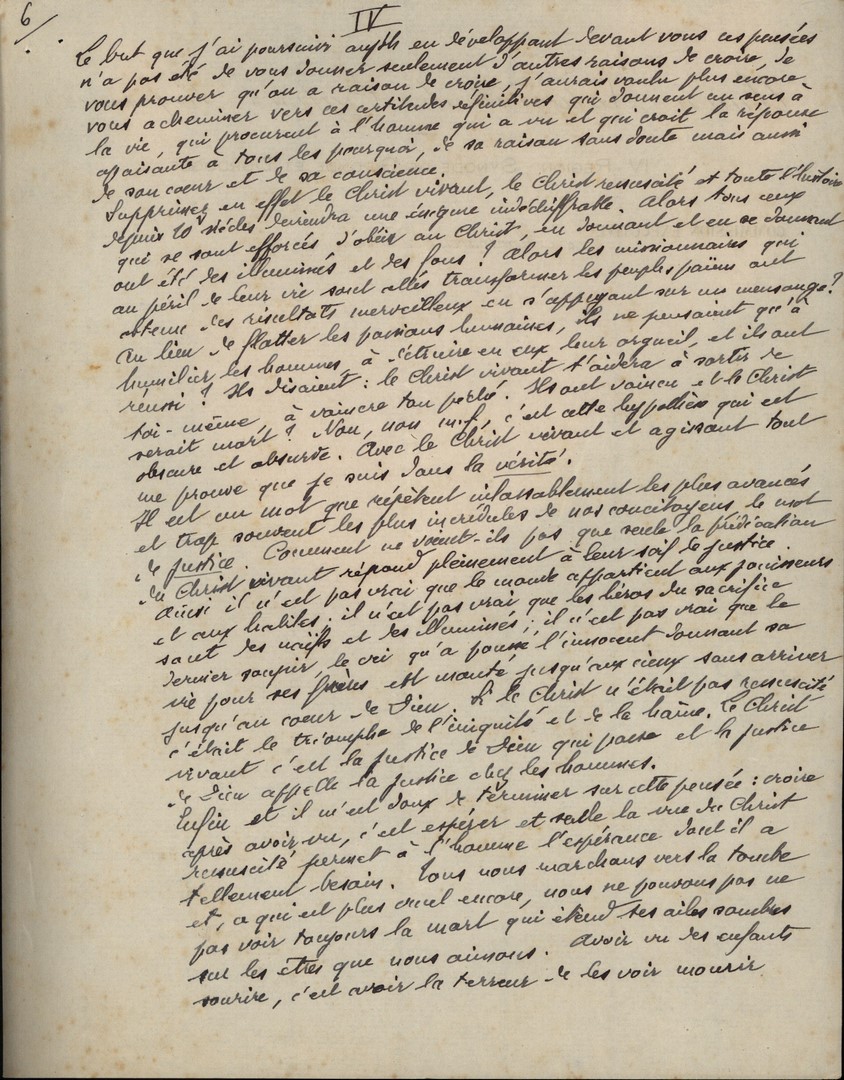 6
IV
Le but que j'ai poursuivi aujdh en développant devant vous ces pensées
n'a pas été de vous donner seulement d'autres raisons de croire, de
vous prouver qu'on a raison de croire, j'aurais voulu plus encore
vous acheminer vers ces certitudes définitives qui donnent un sens à
la vie, qui procurent à l'homme qui a vu et qui croit la réponse
apaisante à tous les pourquoi, de sa raison sans doute mais aussi
de son coeur et de sa conscience.
Supprimez en effet le Christ vivant, le Christ ressuscité et toute l'histoire
depuis 20 siècles deviendra une énigme indéchiffrable. Alors tous ceux
qui se sont efforcés d'obéir au Christ, en donnant et en se donnant
ont été des illuminés et des fous ? Alors les missionnaires qui
au péril de leur vie sont allés transformer les peuples païens ont
obtenu des résultats merveilleux en s'appuyant sur un mensonge ?
Au lieu de flatter les passions humaines, ils ne pensaient qu'à
humilier les hommes, à détruire en eux leur orgueil, et ils ont
réussi ? Ils disaient : le Christ vivant t'aidera à sortir de
toi-même, à vaincre ton péché. Ils ont vaincu et le Christ
serait mort ? Non, non m.f, c'est cette hypothèse qui est
obscure et absurde. Avec le Christ vivant et agissant tout
me prouve que je suis dans la vérité.
Il est un mot que répètent inlassablement les plus avancés
et trop souvent les plus incrédules de nos concitoyens, le mot
de justice. Comment ne voient-ils pas que seule la prédication
du Christ vivant répond pleinement à leur soif de justice.
Ainsi il n'est pas vrai que le monde appartient aux jouisseurs
et aux habiles ; il n'est pas vrai que les héros du sacrifice
sont des naïfs et des illuminés ; il n'est pas vrai que le
dernier soupir, le cri qu'a poussé l'innocent donnant sa
vie pour ses frères est monté jusqu'aux cieux sans arriver
jusqu'au coeur de Dieu. Si le Christ n'était pas ressuscité
c'était le triomphe de l'iniquité et de la haine. Le Christ
vivant c'est la justice de Dieu qui passe et la justice
de Dieu appelle la justice chez les hommes.
Enfin et il m'est doux de terminer sur cette pensée : croire
après avoir vu, c'est espérer et seule la vue du Christ
ressuscité permet à l'homme l'espérance dont il a
tellement besoin. Tous nous marchons vers la tombe
et, ce qui est plus cruel encore, nous ne pouvons pas ne
pas voir toujours la mort qui étend ses ailes sombres
sur les êtres que nous aimons. Avoir vu des enfants
sourire, c'est avoir la terreur de les voir mourir